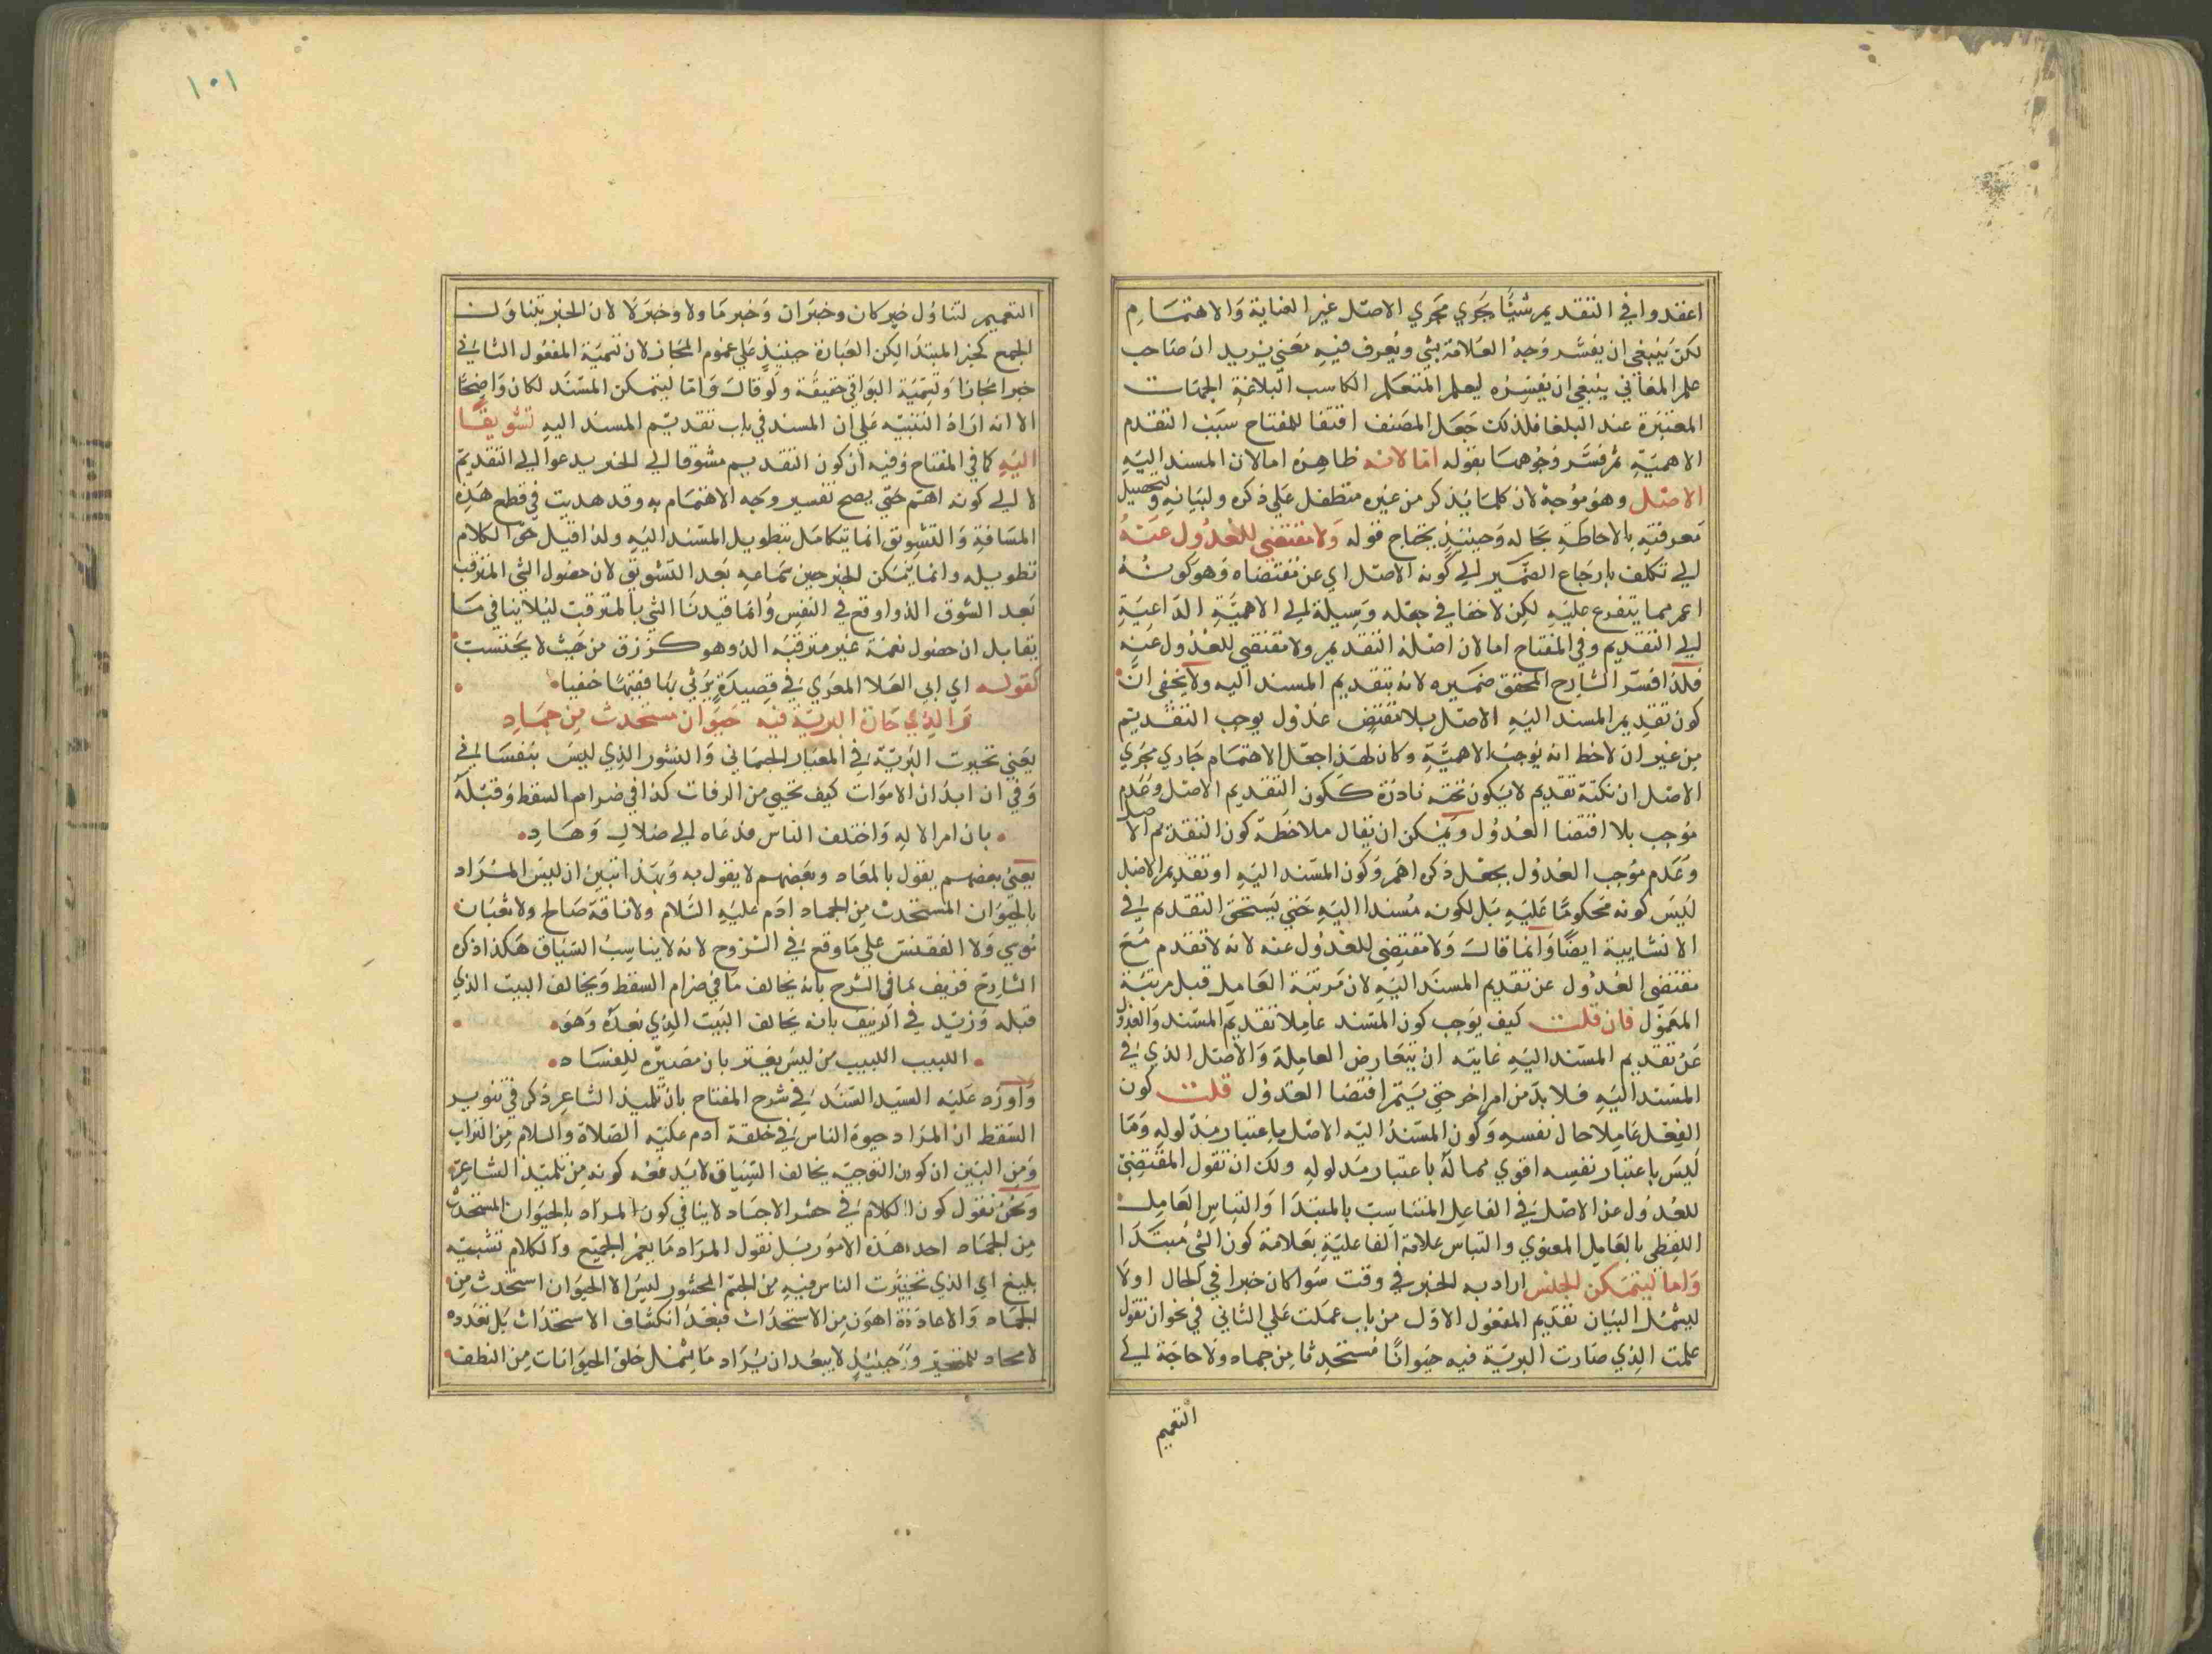 اعتمدوا في التقديم شيئا يجري مجري الاصل غير العناية والاهتمام
لكن ينبغي ان يفسر وجه العلامة بشي ويعرف فيه معني يريد ان صاحب
علم المعاني ينبغي ان يفسره ليعلم المتعلم الكاسب البلاغة الجهات
المعتبرة عند البلغا فلذلك جعل المصنف اقتفا للمفتاح سبب التقدم
الاهمية ثم فسر وجوهها بقوله اما لانه ظاهره اما لان المسند اليه
الاصل وهو موجه لان كلما يذكر من غيره متطفل علي ذكره ولبيانه ولتحصيل
معرفته بالاحاطة بحاله وحينئذ يحتاج قوله ولا مقتضي للعدول عنه
الي تكلف بارجاع الضمير الي كونه الاصل اي عن مقتضاه وهو كونه
اعم مما يتفرع عليه لكن لا خفا في جعله وسيلة الي الاهمية الداعية
الي التقديم وفي المفتاح اما لان اصله التقديم ولا مقتضي للعدول عنه
فلذا فسر الشارح المحقق ضميره لانه بتقديم المسند اليه ولا يخفي ان
كون تقديم المسند اليه الاصل بلا مقتض عدول يوجب التقديم
من غير ان لاحظ انه يوجب الاهمية وكان لهذا جعل الاهتمام جاري مجري
الاصل ان نكتة تقديم لا يكون تحته نادرة ككون التقديم الاصل وعدم
موجب بلا اقتضا العدول ويمكن ان يقال ملاحظة كون التقديم الاصل
وعدم موجب العدول يجعل ذكره اهم وكون المسند اليه او تقديم الاصل
ليس كونه محكوما عليه بل لكونه مسندا اليه حتي يستحق التقديم في
الانشايية ايضا وانما قال ولا مقتضي للعدول عنه لانه لا تقدم مع
مقتضي العدول عن تقديم المسند اليه لان مرتبة العامل قبل مرتبة
المعمول فان قلت كيف يوجب كون المسند عاملا تقديم المسند والعدول
عن تقديم المسند اليه غايته ان يتعارض العاملة والاصل الذي في
المسند اليه فلا بد من امر اخر حتي يتم اقتضا العدول قلت كون
الفعل عاملا حال نفسه وكون المسند اليه الاصل باعتبار مدلوله وما
ليس باعتبار نفسه اقوي مما له باعتبار مدلوله ولك ان تقول المقتضي
للعدول عن الاصل في الفاعل المتناسب بالمبتدا والتباس العامل
اللفظي بالعامل المعنوي والتباس علامة الفاعلية بعلامة كون الشي مبتدا
واما ليتمكن الجنس اراد به الخبر في وقت سوا كان خبرا في الحال اولا
ليشمل البيان تقديم المفعول الاول من باب علمت علي الثاني في نحو ان تقول
علمت الذي صارت البرية فيه حيوانا مستحدثا من جماد ولا حاجة الي
التعميم
١٠١
التعميم لتناول خبر كان وخبر ان وخبر ما ولا وخبر لا لان الخبر يتناول
الجمع كخبر المبتدا لكن العبارة حينئذ علي عموم المجاز لان تسمية المفعول الثاني
خبرا مجازا وتسمية البواقي حقيقة ولو قال واما ليتمكن المسند لكان واضحا
الا انه اراد التنبيه علي ان المسند في باب تقديم المسند اليه تشويقا
اليه كما في المفتاح وفيه ان كون التقديم مشوقا الي الخبر يدعوا الي التقديم
لا الي كونه اهم حتي يصح تفسير وجه الاهتمام به وقد هديت في قطع هذه
المسافة والتشويق انما يتكامل بتطويل المسند اليه ولذا قيل حق الكلام
تطويله وانما يتمكن الخبر حين سماعه بعد التشويق لان حصول الشي المترقب
بعد الشوق الذ واوقع في النفس وانما قيدنا الشي بالمترقب ليلا ينافي ما
يقابل ان حصول نعمة غير مترقبة الذ وهو كرزق من حيث لا يحتسب
كقوله اي ابي العلا المعري في قصيدة يرثي بها فقيها حنفيا
والذي حارت البرية فيه حيوان مستحدث من جماد
يعني تحيرت البرية في المعاد الجسماني والنشور الذي ليس بنفساني
وفي ان ابدان الاموات كيف تحيي من الرفات كذا في ضرام السقط وقبله
بان امر الاله واختلف الناس فداع الي ضلال وهاد
يعني بعضهم يقول بالمعاد وبعضهم لا يقول به وبهذا تبين ان ليس المراد
بالحيوان المستحدث من الجماد ادم عليه السلام ولا ناقة صالح ولا ثعبان
موسي ولا الققنس علي ما وقع في الشروح لانه لا يناسب السياق هكذا ذكره
الشارح فزيف بما في الشرح بانه يخالف ما في ضرام السقط ويخالف البيت الذي
قبله وزيد في التزييف بانه يخالف البيت الذي بعده وهو
اللبيب اللبيب من ليس يغتر بان مصيره للفساد
واورد عليه السيد السند في شرح المفتاح بان تلميذ الشاعر ذكر في تنوير
السقط ان المراد حيوة الناس في خلقة ادم عليه الصلاة والسلام من التراب
ومن البين ان كون التوجيه يخالف السياق لا يدفعه كونه من تلميذ الشاعر
ونحن نقول كون الكلام في حشر الاجساد لا ينافي كون المراد بالحيوان المستحدث
من الجماد احد هذه الامور بل نقول المراد ما يعم الجميع والكلام تشبيه
بليغ اي الذي تحيرت الناس فيه من الجسم المحشور ليس الا الحيوان استحدث من
الجماد والاعادة اهون من الاستحداث فبعد انكشاف الاستحداث بل تعدده
لا مجاد للتحير وحينئذ لا يبعد ان يراد ما يشمل خلق الحيوانات من النطف